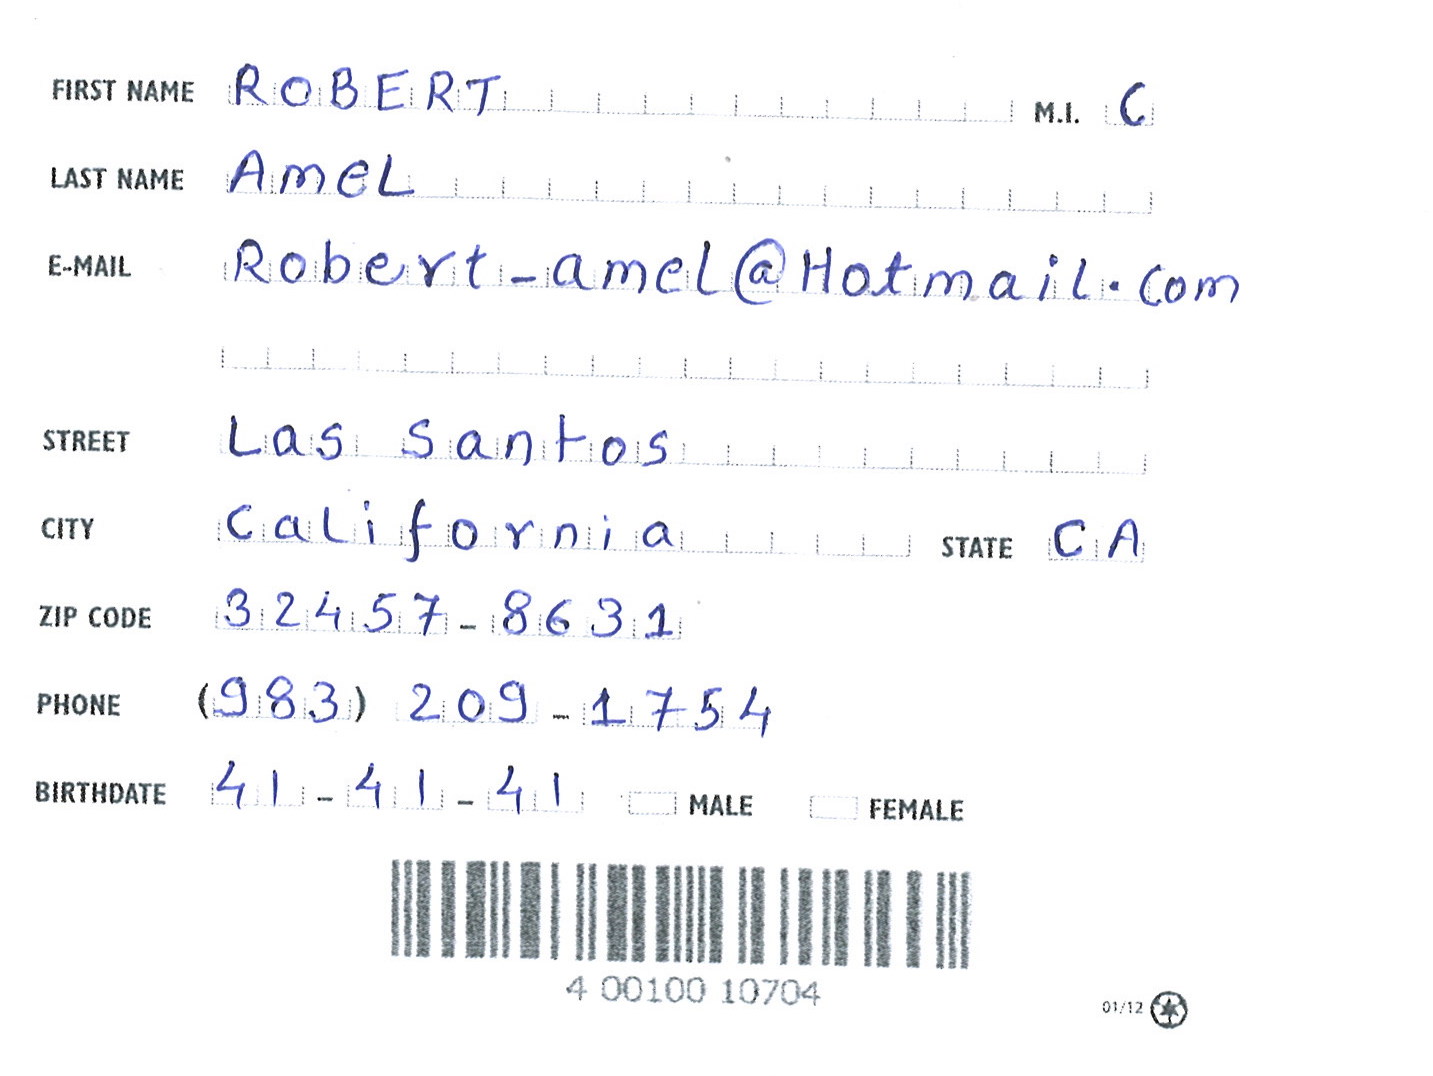 FIRST NAME ROBERT M.I. C
LAST NAME AmeL
E-MAIL Robert-amel@Hotmail.com
STREET Las santos
CITY California STATE CA
ZIP CODE 32457-8631
PHONE (983) 209-1754
BIRTHDATE 41-41-41 MALE FEMALE
4 00100 10704
01/12